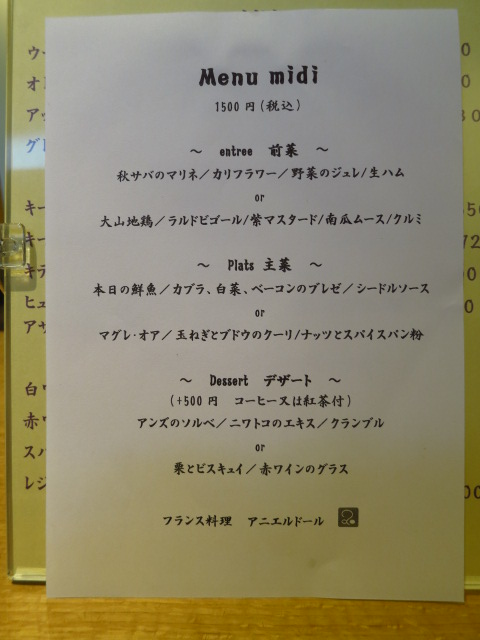 Menu midi
1500 円(税込)
～ entree 前菜 ～
秋サバのマリネ/カリフラワー/野菜のジュレ/生ハム
or
大山地鶏/ラルドビゴール/紫マスタード/南瓜ムース/クルミ
～ Plats 主菜 ～
本日の鮮魚/カブラ、白菜、ベーコンのブレゼ/シードルソース
or
マグレ・オア/玉ねぎとブドウのクーリ/ナッツとスパイスパン粉
～ Dessert デザート ～
(+500 円 コーヒー又は紅茶付)
アンズのソルベ/ニワトコのエキス/クランブル
or
栗とビスキュイ/赤ワインのグラス
フランス料理 アニエルドール
ウ
オ
ア
グ
キー
キー
キ
ヒュ
アサ
白
赤
ス
レジ